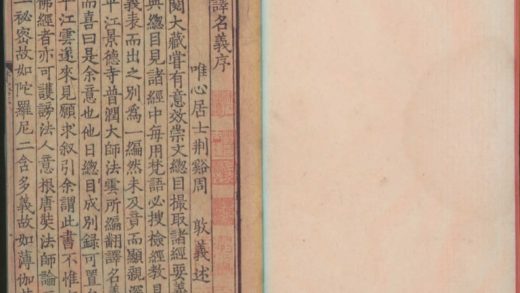 譯名義序
唯心居士荆谿周 敦義述
閱大藏嘗有意效崇文總目撮取諸經要義
與總目見諸經中每用梵語必搜檢經教具
義表而出之別爲一編然未及竟而顯親深
平江景德寺普潤大師法雲所編翻譯名義
而喜曰是余意也他日總目成別錄可置
平江雲遂來見願求叙引余謂此書不惟
佛經者亦可護謗法人意根唐奘法師論
一秘密故如陀羅尼二含多義故如薄伽